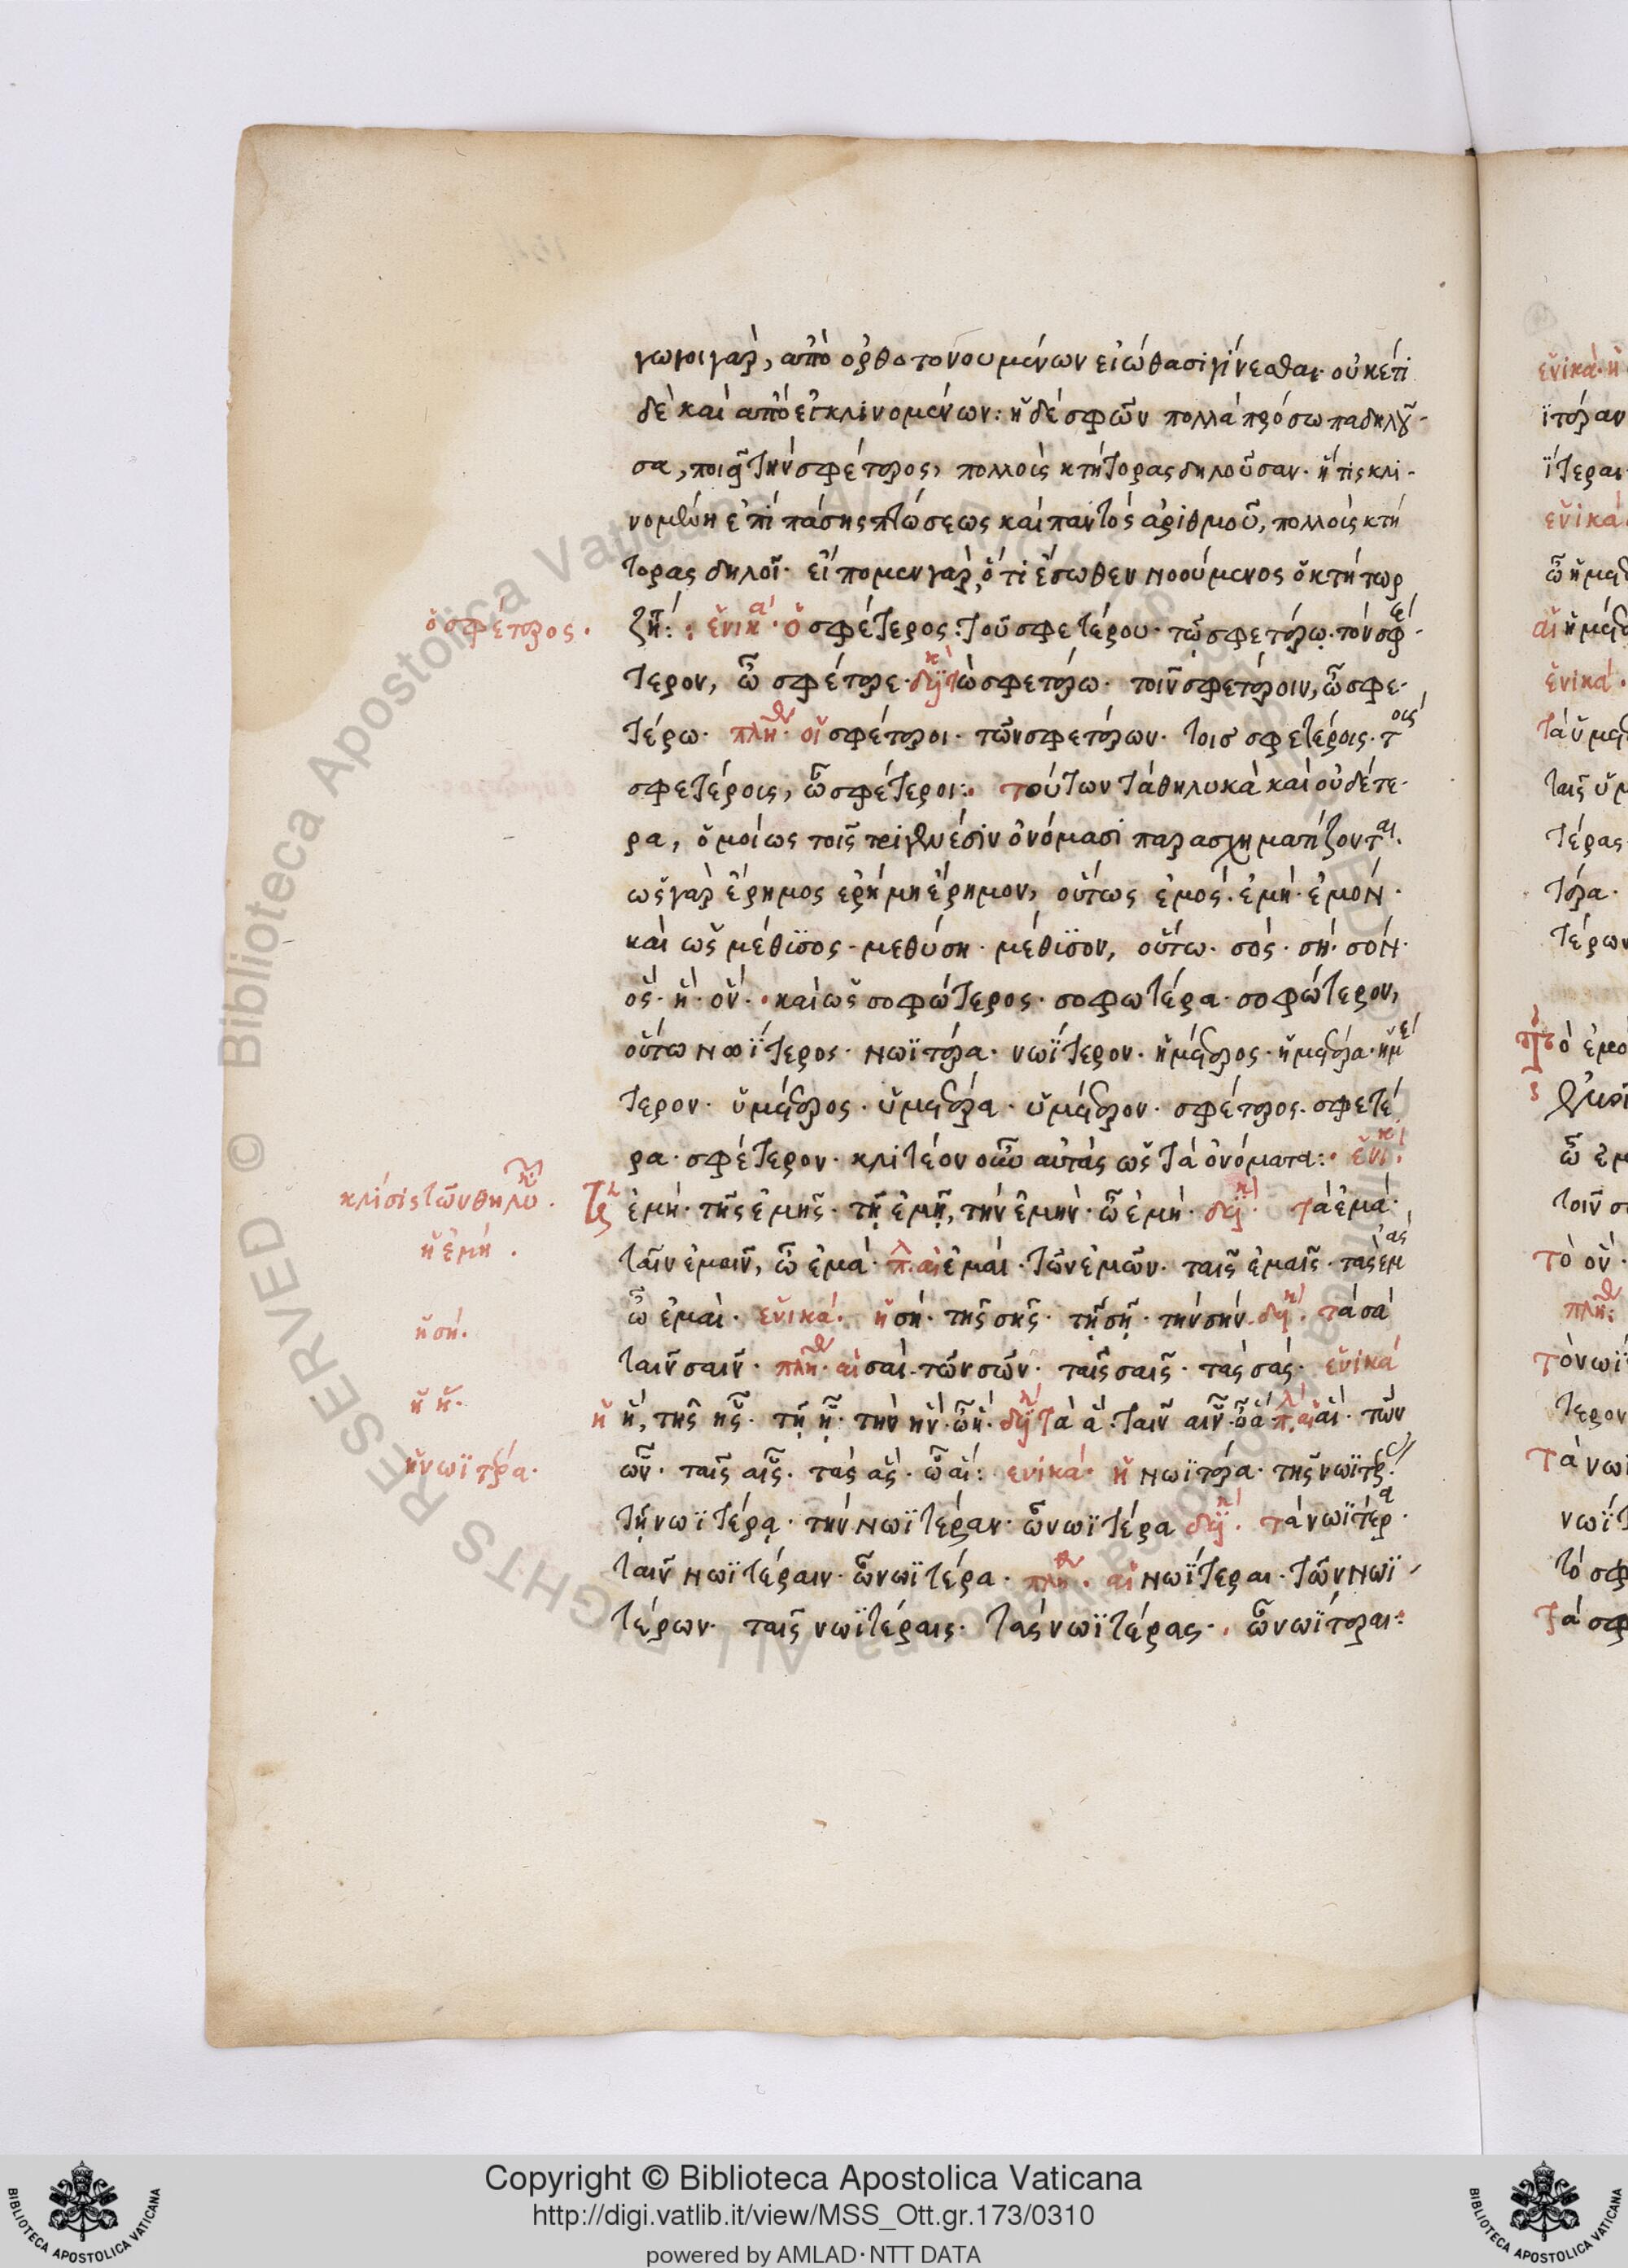 γωγοι γὰρ, ἀπὸ ὀρθοτονουμένων εἰώθασι γίνεσθαι· οὐκέτι
δὲ καὶ ἀπὸ ἐγκλινομένων: ἡ δὲ σφῶν πολλὰ πρόσωπα δηλοῦ-
σα, ποιεῖ τὴν σφέτερος, πολλοὺς κτήτορας δηλοῦσαν· ἥτις κλι-
νομένη ἐπὶ πάσης πτώσεως καὶ παντὸς ἀριθμοῦ, πολλοὺς κτή
τορας δηλοῖ· εἴπομεν γὰρ, ὅτι ἔσωθεν νοούμενος ὁ κτήτωρ
ὁ σφέτερος·
ἑνικά· ὁ σφέτερος: τοῦ σφετέρου· τῷ σφετέρῳ· τὸν σφέ-
τερον, ὦ σφέτερε· δυϊκ τὼ σφετέρω· τοῖν σφετέροιν, ὦ σφε-
τέρω· πλη· οἱ σφέτεροι· τῶν σφετέρων· τοῖς σφετέροις· τοὺς
σφετέροις, ὦ σφέτεροι: τούτων τὰ θηλυκὰ καὶ οὐδέτε-
ρα, ὁμοίως τοῖς τριγενέσιν ὀνόμασι παρασχηματίζονται·
ὡς γὰρ ἔρημος ἐρήμη ἔρημον, οὕτως ἐμός· ἐμή· ἐμόν·
καὶ ὡς μέθυσος - μεθύση· μέθυσον, οὕτω· σός· σή· σόν·
ὅς· ἥ· ὅν· καὶ ὡς σοφώτερος· σοφωτέρα· σοφώτερον,
οὕτω νωΐτερος· νωϊτέρα· νωΐτερον· ἡμέτερος· ἡμετέρα· ἡμέ
τερον· ὑμέτερος· ὑμετέρα· ὑμέτερον· σφέτερος· σφετέ
ρα· σφέτερον· κλιτέον οὖν αὐτὰς ὡς τὰ ὀνόματα: ἑνι·
κλίσις τῶν θηλυκῶν·
ἡ ἐμή·
ἐμή· τῆς ἐμῆς· τῇ ἐμῇ, τὴν ἐμήν· ὦ ἐμή· δυϊκ· τὰ ἐμά·
ταῖν ἐμαῖν, ὦ ἐμά· πλ· αἱ ἐμαί· τῶν ἐμῶν· ταῖς ἐμαῖς· τὰς ἐμάς
ἡ σή·
ὦ ἐμαί· ἑνικά· ἡ σή· τῆς σῆς· τῇ σῇ· τὴν σήν· δυϊκ· τὰ σά
ταῖν σαῖν· πλη· αἱ σαί· τῶν σῶν· ταῖς σαῖς· τὰς σάς· ἑνικά
ἡ ἥ·
ἡ ἥ, τῆς ἧς· τῇ ᾗ· τὴν ἥν· ὦ ἥ· δυϊκ τὰ ἅ· ταῖν αἷν· ὦ ἅ· πλ· αἱ αἵ· τῶν
ἡ νωϊτέρα·
ὧν· ταῖς αἷς· τὰς ἅς· ὦ αἵ: ἑνικά· ἡ νωϊτέρα· τῆς νωϊτέρας·
τῇ νωϊτέρᾳ· τὴν νωϊτέραν· ὦ νωϊτέρα δυϊκ· τὰ νωϊτέρα·
ταῖν νωϊτέραιν· ὦ νωϊτέρα· πλη· αἱ νωΐτεραι· τῶν νωϊ
τέρων· ταῖς νωϊτέραις· τὰς νωϊτέρας· ὦ νωΐτεραι:
Copyright © Biblioteca Apostolica Vaticana
http://digi.vatlib.it/view/MSS_Ott.gr.173/0310
powered by AMLAD·NTT DATA